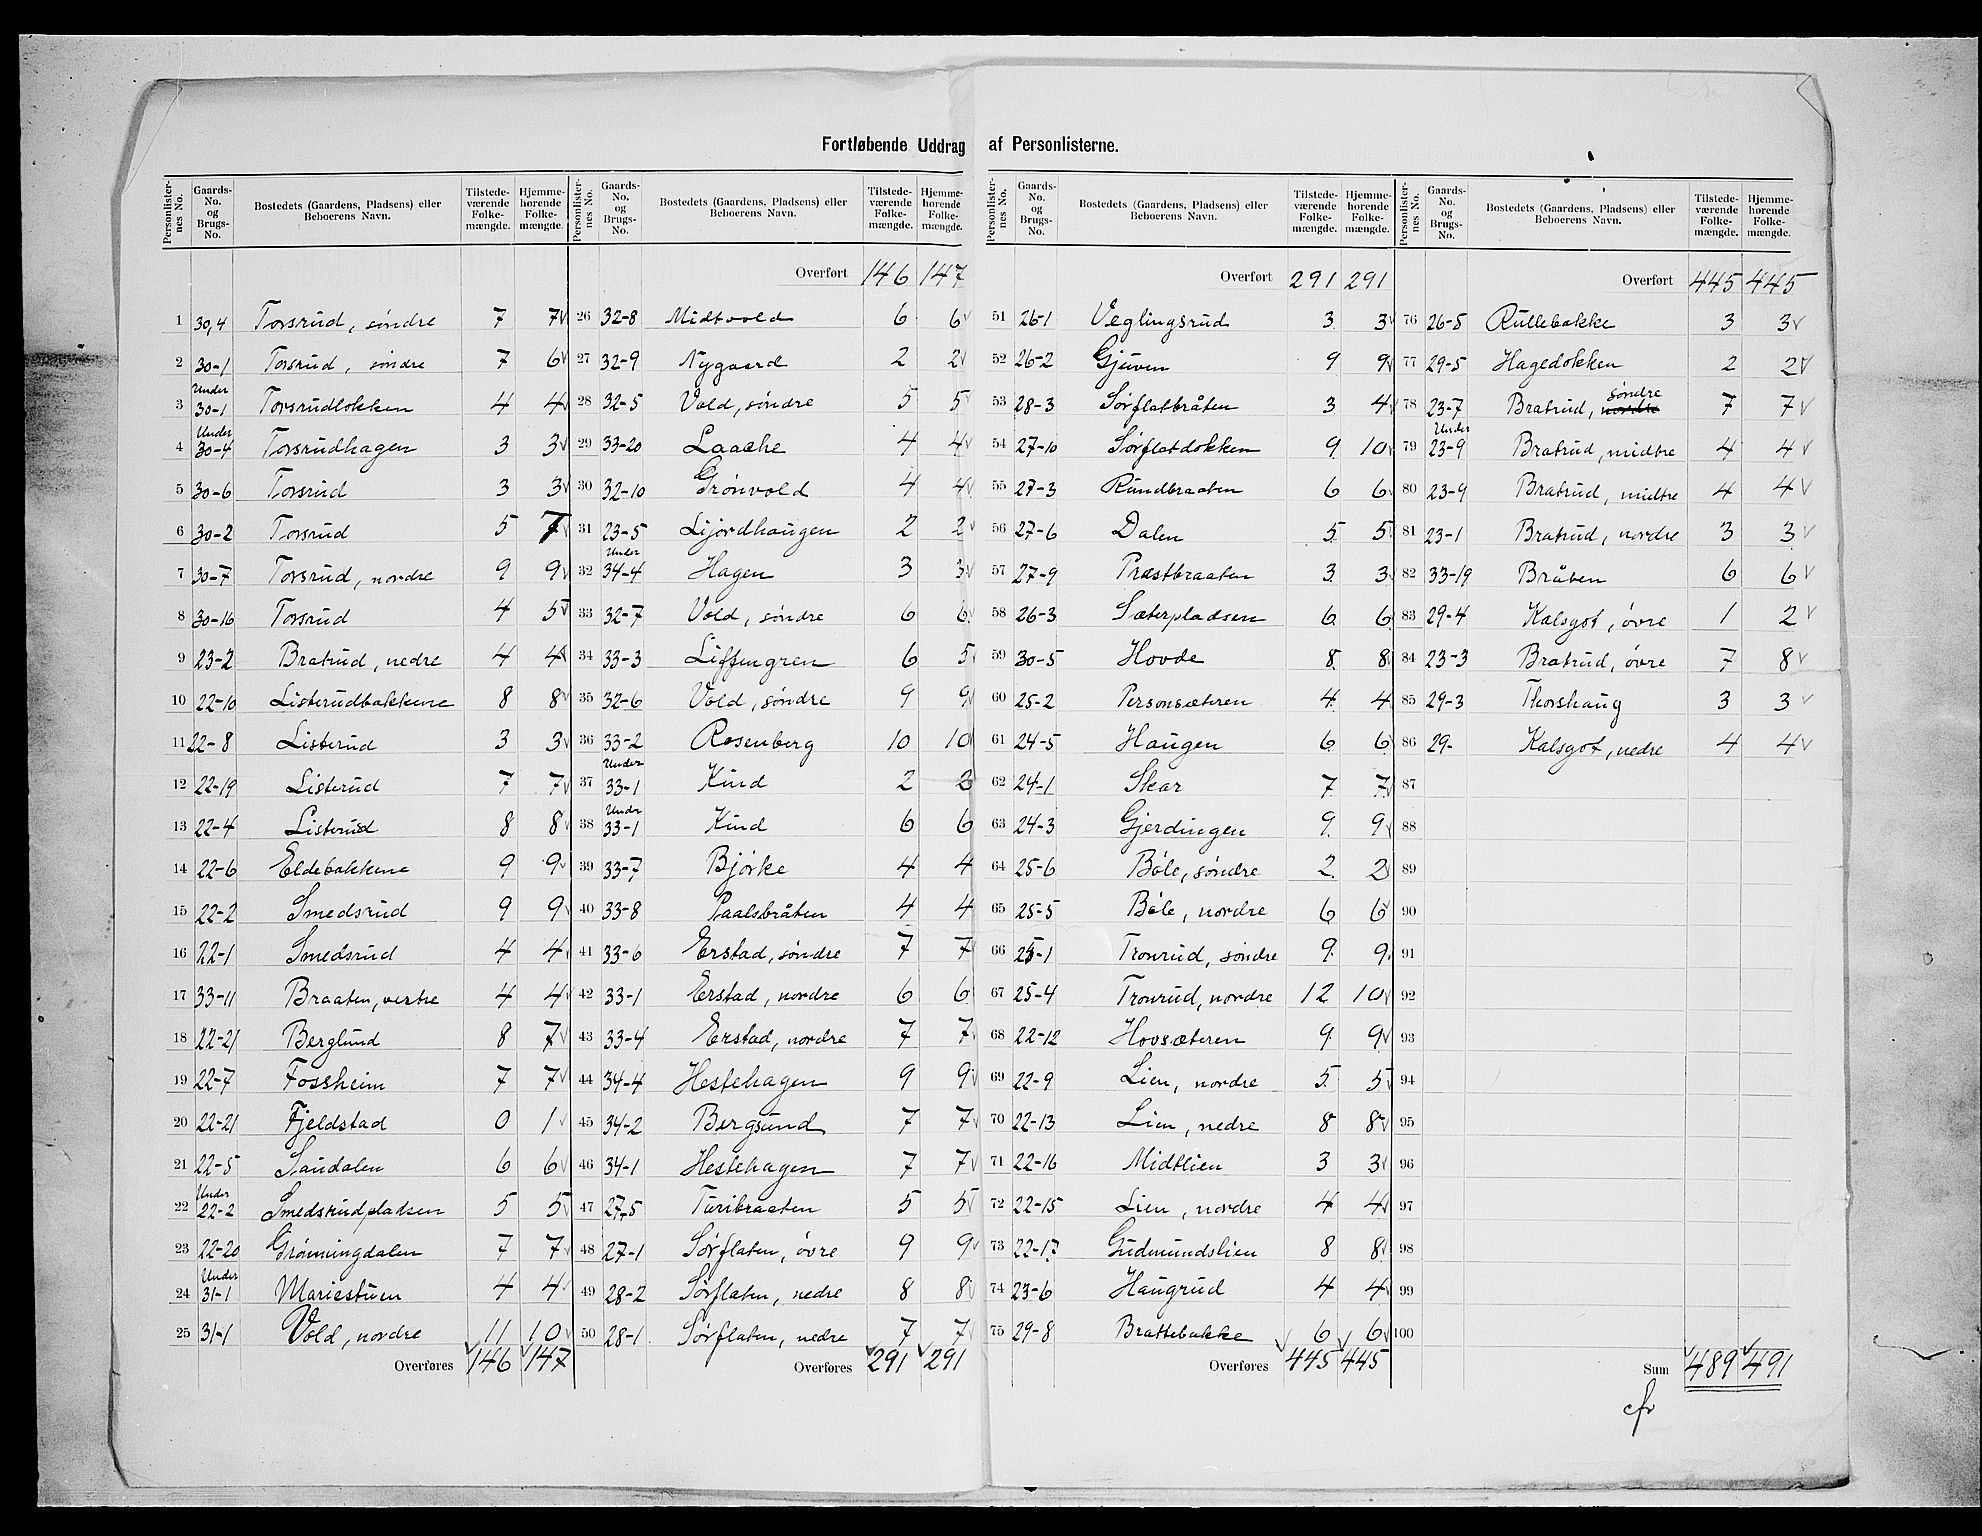 Fortløbende Uddrag af Personlisterne.
Personlisternes No. | Gaards-No. og Brugs-No. | Bostedets (Gaardens, Pladsens) eller Beboerens Navn. | Tilstedeværende Folkemængde. | Hjemmehørende Folkemængde.
1 30,4 Torsrud, søndre 7 7
2 30-1 Torsrud, søndre 7 6
3 Under 30-1 Torsrudløkken 4 4
4 Under 30-4 Torsrudhagen 3 3
5 30-6 Torsrud 3 3
6 30-2 Torsrud 5 7
7 30-7 Torsrud, nordre 9 9
8 30-16 Torsrud 4 5
9 23-2 Bratrud, nedre 4 4
10 22-10 Listerudbakkene 8 8
11 22-8 Listerud 3 3
12 22-19 Listerud 7 7
13 22-4 Listerud 8 8
14 22-6 Eldebakkene 9 9
15 22-2 Smedsrud 9 9
16 22-1 Smedsrud 4 4
17 33-11 Braaten, vestre 4 4
18 22-21 Berglund 8 7
19 22-7 Fossheim 7 7
20 22-21 Fjeldstad 0 1
21 22-5 Saudalen 6 6
22 Under 22-2 Smedsrudpladsen 5 5
23 22-20 Grønningdalen 7 7
24 Under 31-1 Mariestuen 4 4
25 31-1 Vold, nordre 11 10
Overføres 146 147
Personlisternes No. | Gaards-No. og Brugs-No. | Bostedets (Gaardens, Pladsens) eller Beboerens Navn. | Tilstedeværende Folkemængde. | Hjemmehørende Folkemængde.
Overført 146 147
26 32-8 Midtvold 6 6
27 32-9 Nygaard 2 2
28 32-5 Vold, søndre 5 5
29 33-20 Laache 4 4
30 32-10 Grønvold 4 4
31 23-5 Lijordhaugen 2 2
32 Under 34-4 Hagen 3 3
33 32-7 Vold, søndre 6 6
34 33-3 Liffengren 6 5
35 32-6 Vold, søndre 9 9
36 33-2 Rosenberg 10 10
37 Under 33-1 Kind 2 3
38 Under 33-1 Kind 6 6
39 33-7 Bjørke 4 4
40 33-8 Paalsbråten 4 4
41 33-6 Erstad, søndre 7 7
42 33-1 Erstad, nordre 6 6
43 33-4 Erstad, nordre 7 7
44 34-4 Hestehagen 9 9
45 34-2 Bergsund 7 7
46 34-1 Hestehagen 7 7
47 27-5 Turibraaten 5 5
48 27-1 Sørflaten, øvre 9 9
49 28-2 Sørflaten, nedre 8 8
50 28-1 Sørflaten, nedre 7 7
Overføres 291 291
Personlisternes No. | Gaards-No. og Brugs-No. | Bostedets (Gaardens, Pladsens) eller Beboerens Navn. | Tilstedeværende Folkemængde. | Hjemmehørende Folkemængde.
Overført 291 291
51 26-1 Veglingsrud 3 3
52 26-2 Gjuven 9 9
53 28-3 Sørflatbråten 3 4
54 27-10 Sørflatdokken 9 10
55 27-3 Rundbraaten 6 6
56 27-6 Dalen 5 5
57 27-9 Præstbraaten 3 3
58 26-3 Sæterpladsen 6 6
59 30-5 Hovde 8 8
60 25-2 Personsæteren 4 4
61 24-5 Haugen 6 6
62 24-1 Skar 7 7
63 24-3 Gjerdingen 9 9
64 25-6 Bøle, søndre 2 2
65 25-5 Bøle, nordre 6 6
66 25-1 Tronrud, søndre 9 9
67 25-4 Tronrud, nordre 12 10
68 22-12 Hovsæteren 9 9
69 22-9 Lien, nordre 5 5
70 22-13 Lien, nedre 8 8
71 22-16 Midtlien 3 3
72 22-15 Lien, nordre 4 4
73 22-17 Gudmundslien 8 8
74 23-6 Haugrud 4 4
75 29-8 Brattebakke 6 6
Overføres 445 445
Personlisternes No. | Gaards-No. og Brugs-No. | Bostedets (Gaardens, Pladsens) eller Beboerens Navn. | Tilstedeværende Folkemængde. | Hjemmehørende Folkemængde.
Overført 445 445
76 26-5 Rullebakke 3 3
77 29-5 Hagedokken 2 2
78 23-7 Bratrud, nordre søndre 7 7
79 Under 23-9 Bratrud, midtre 4 4
80 23-9 Bratrud, midtre 4 4
81 23-1 Bratrud, nordre 3 3
82 33-19 Bråten 6 6
83 29-4 Kalsgot, øvre 1 2
84 23-3 Bratrud, øvre 7 8
85 29-3 Thorshaug 3 3
86 29- Kalsgot, nedre 4 4
87
88
89
90
91
92
93
94
95
96
97
98
99
100
Sum 489 491